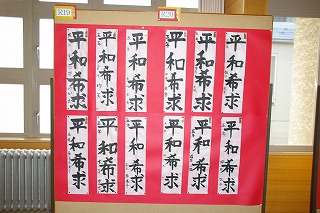 平和希求
平和希求
平和希求
平和希求
平和希求
平和希求
平和希求
平和希求
平和希求
平和希求
平和希求
平和希求